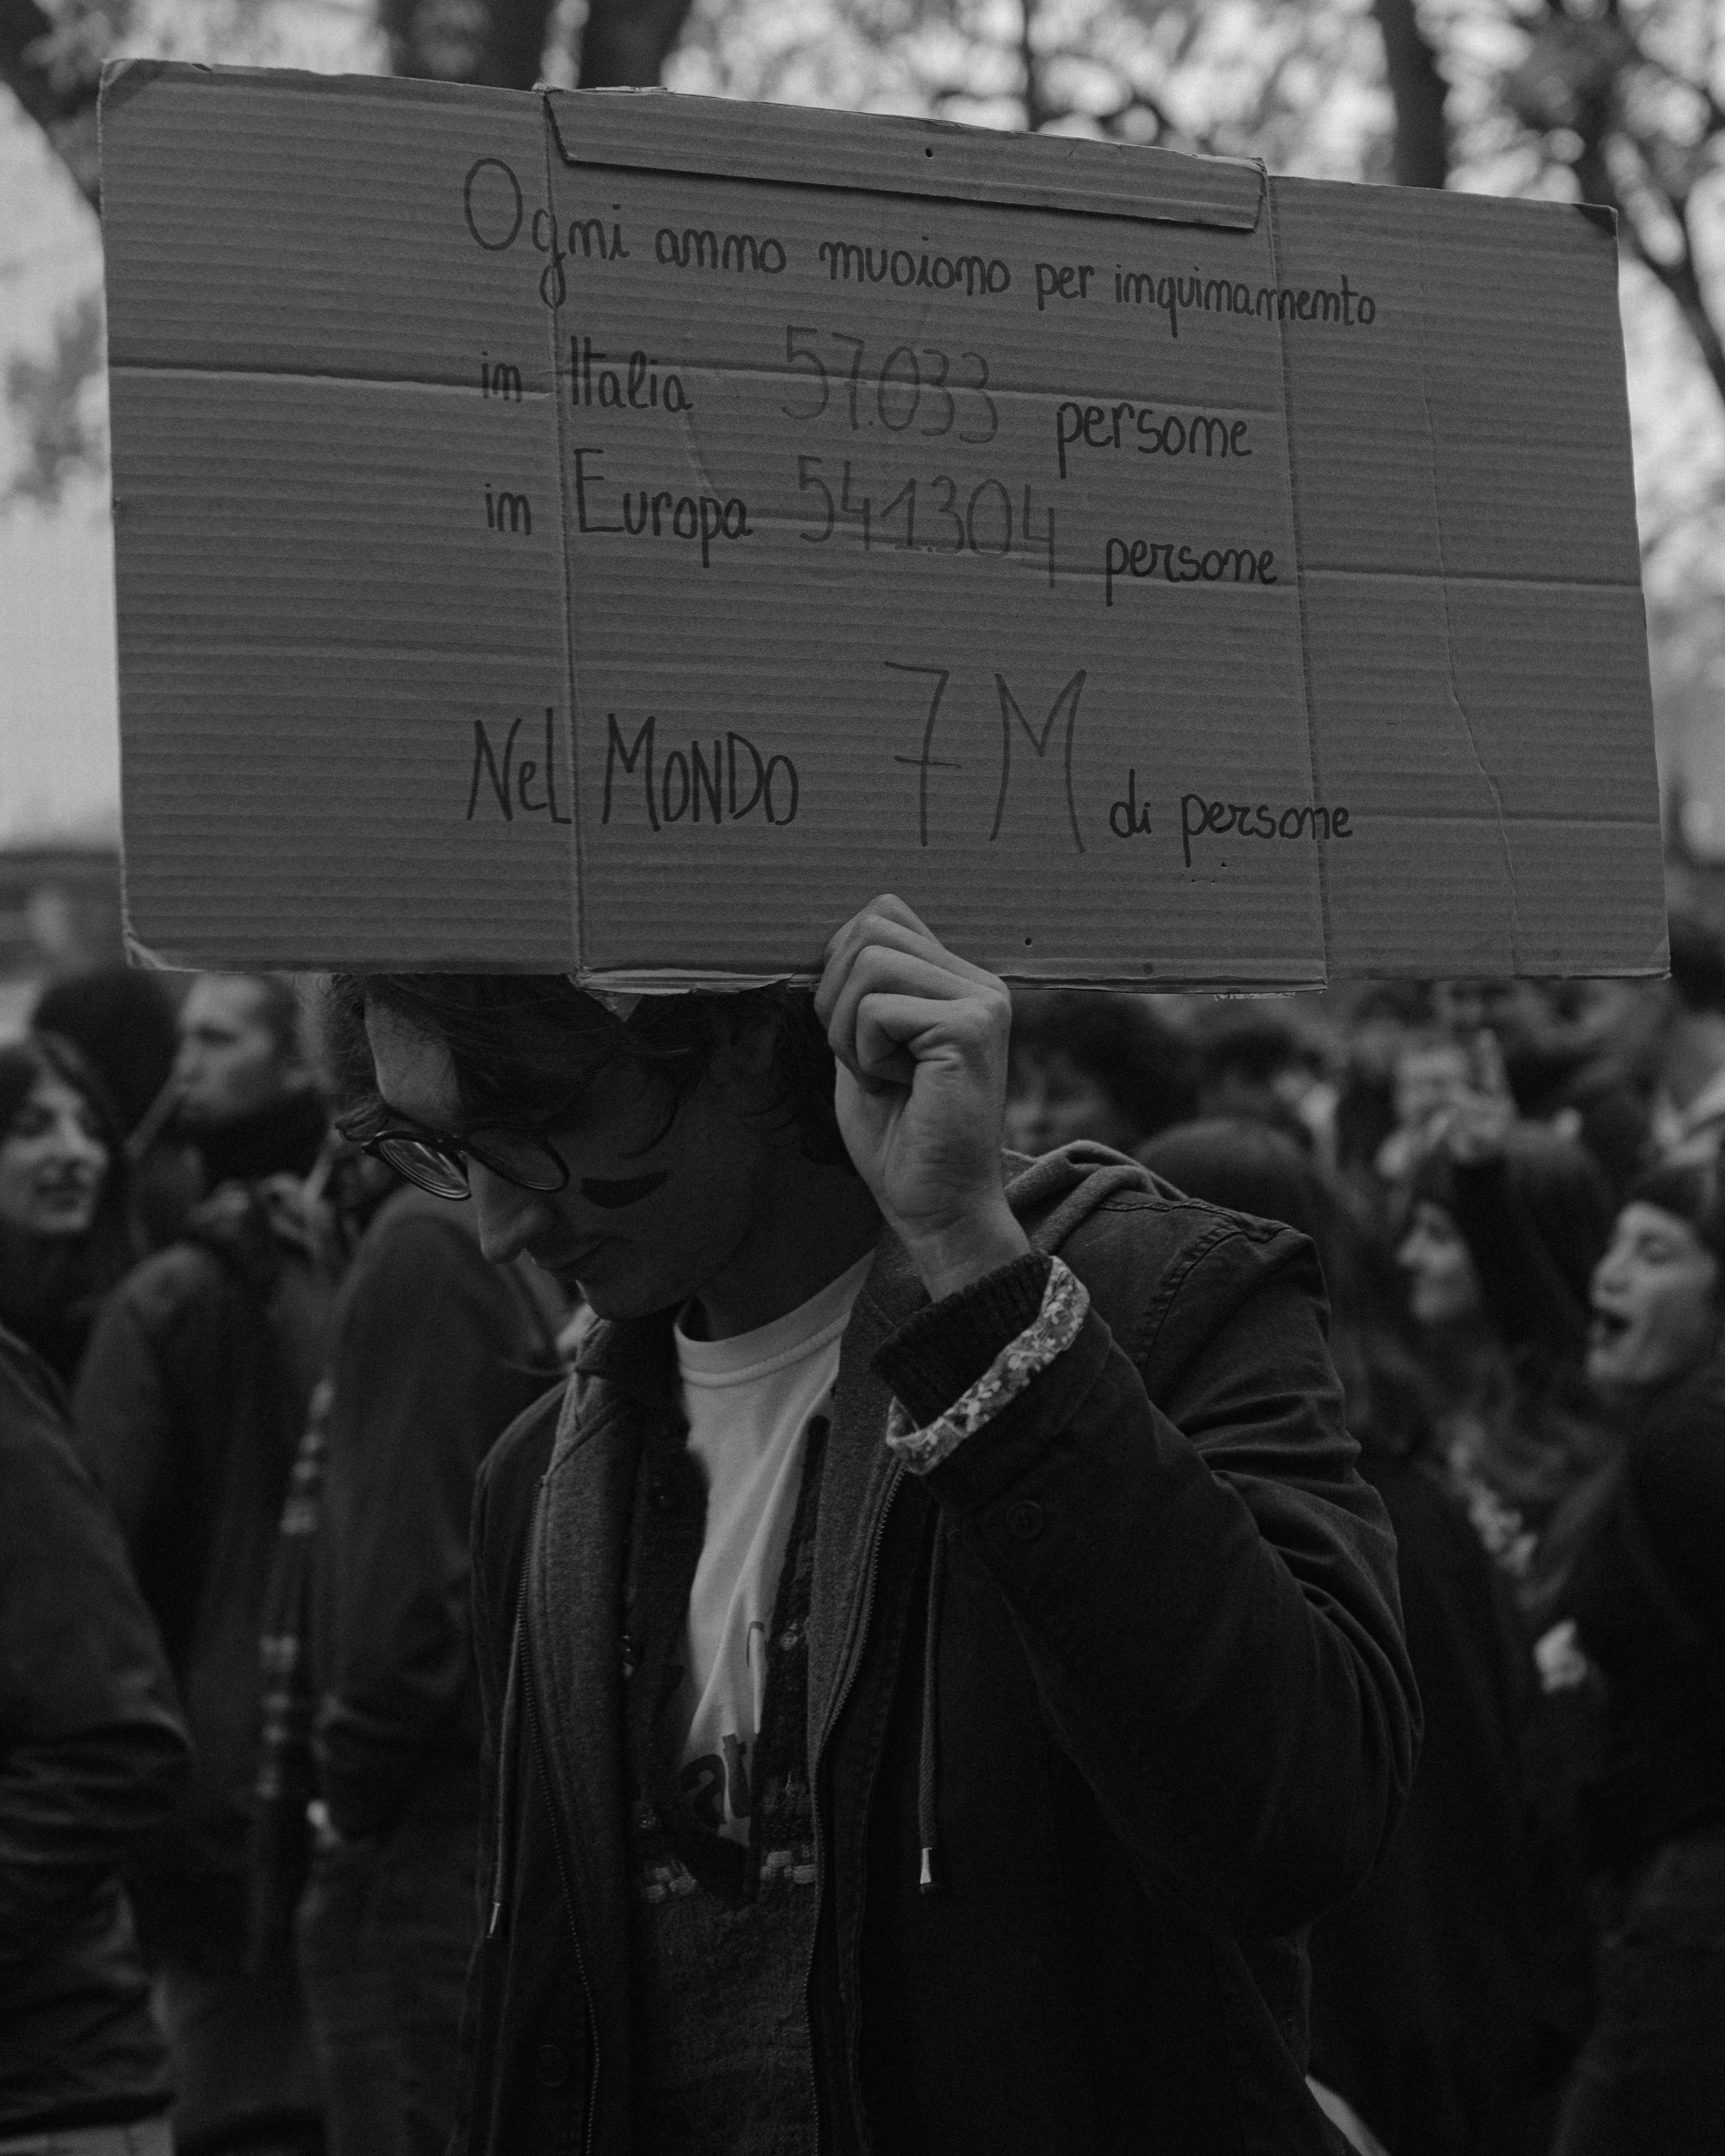 Ogni anno muoiono per inquinamento
in Italia 57.033 persone
in Europa 541.304 persone
Nel MONDO 7M di persone
at